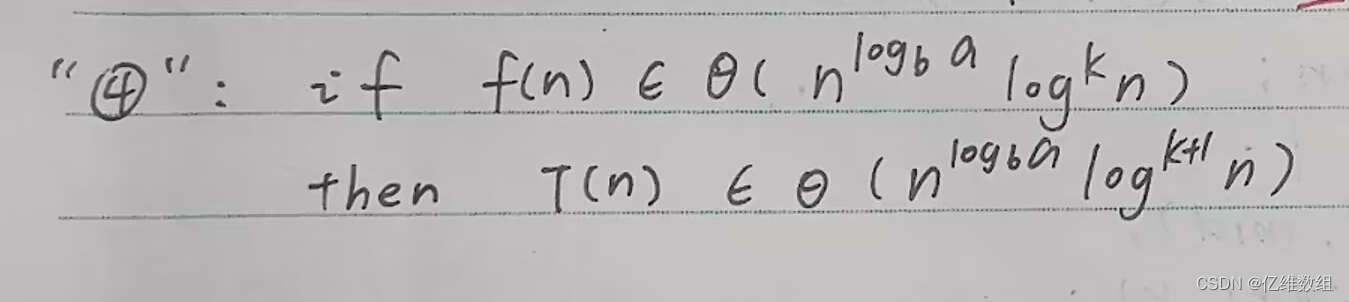 "④": if f(n) ∈ θ( n^{log_b a} log^k n)
then T(n) ∈ θ (n^{log_b a} log^{k+1} n)
CSDN @亿维数组